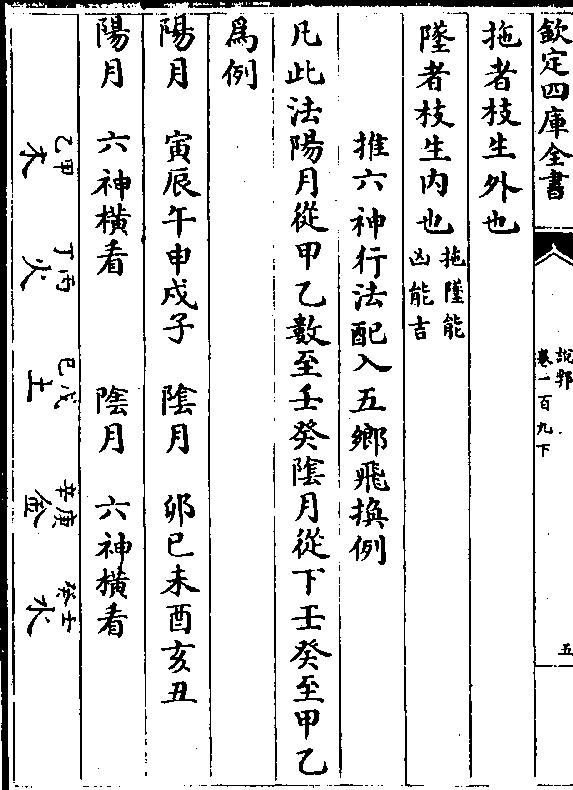 欽定四庫全書
說郛
卷一百九下
五
拖者枝生外也
墜者枝生内也拖墜能凶能吉
推六神行法配入五鄉飛換例
凡此法陽月從甲乙數至壬癸陰月從下壬癸至甲乙
為例
陽月　寅辰午申戌子　陰月　卯巳未酉亥丑
陽月　六神橫看　陰月　六神橫看
甲乙木　丙丁火　戊己土　庚辛金　壬癸水